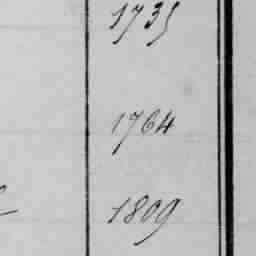 1735
1764
1809